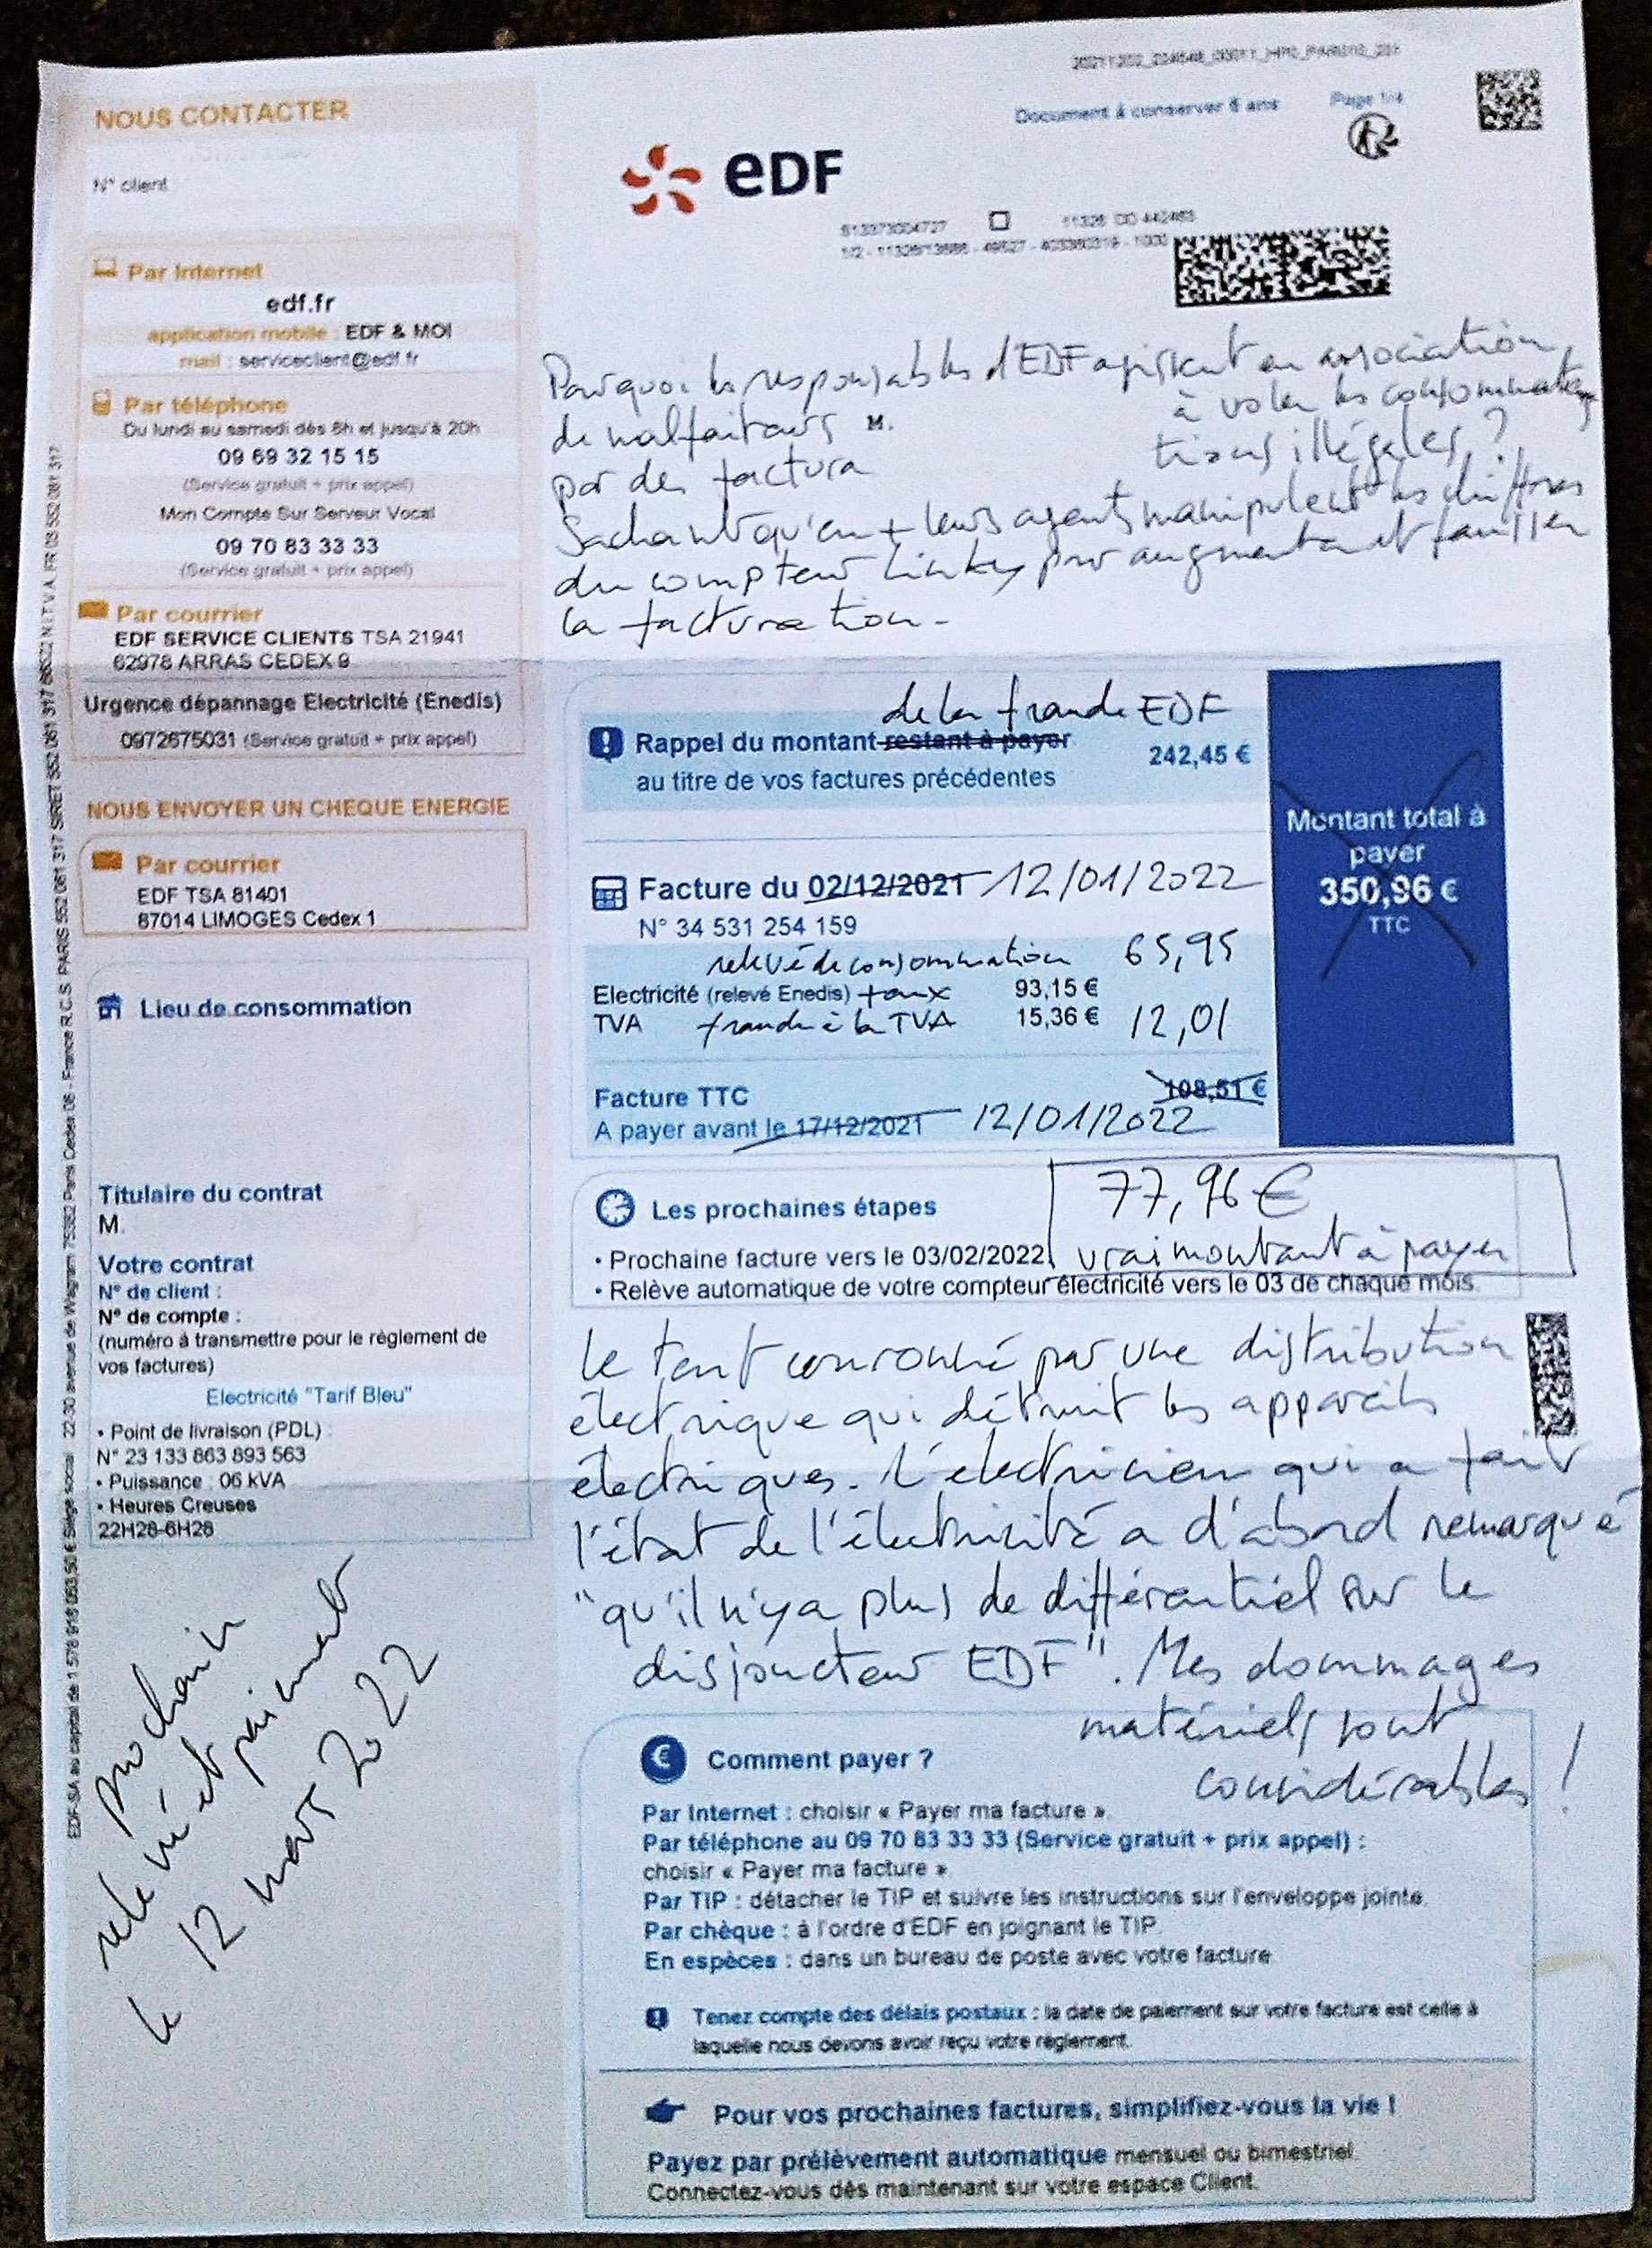 Document à conserver 6 ans
Page 1/4
NOUS CONTACTER
N° client
Par Internet
edf.fr
application mobile : EDF & MOI
mail : serviceclient@edf.fr
Par téléphone
Du lundi au samedi dès 8h et jusqu'à 20h
09 69 32 15 15
(Service gratuit + prix appel)
Mon Compte Sur Serveur Vocal
09 70 83 33 33
(Service gratuit + prix appel)
Par courrier
EDF SERVICE CLIENTS TSA 21941
62978 ARRAS CEDEX 9
Urgence dépannage Electricité (Enedis)
0972675031 (Service gratuit + prix appel)
NOUS ENVOYER UN CHEQUE ENERGIE
Par courrier
EDF TSA 81401
87014 LIMOGES Cedex 1
Lieu de consommation
Titulaire du contrat
M.
Votre contrat
N° de client :
N° de compte :
(numéro à transmettre pour le règlement de
vos factures)
Electricité "Tarif Bleu"
• Point de livraison (PDL) :
N° 23 133 863 893 563
• Puissance : 06 kVA
• Heures Creuses
22H28-6H28
prochain
relevé et paiement
le 12 mars 2022
eDF
Pourquoi les responsables d'EDF agissent en association
de malfaiteurs M. à voler les consommateurs
par des factura tions illégales ?
Sachant qu'en + leurs agents manipulent les chiffres
du compteur Linky pour augmenter et fausser
la facturation -
de la fraude EDF
Rappel du montant restant à payer 242,45 €
au titre de vos factures précédentes
Montant total à
payer
350,96 €
TTC
Facture du 02/12/2021 12/01/2022
N° 34 531 254 159
relevé de consommation 65,95
Electricité (relevé Enedis) taux 93,15 €
TVA fraude à la TVA 15,36 € 12,01
Facture TTC 108,51 €
A payer avant le 17/12/2021 12/01/2022
77,96 €
Les prochaines étapes
• Prochaine facture vers le 03/02/2022. vrai montant à payer
• Relève automatique de votre compteur électricité vers le 03 de chaque mois.
Le tout couronné par une distribution
électrique qui détruit les appareils
électriques. L'électricien qui a fait
l'état de l'électricité a d'abord remarqué
"qu'il n'y a plus de différentiel sur le
disjoncteur EDF". Mes dommages
matériels sont
considérables !
Comment payer ?
Par Internet : choisir « Payer ma facture ».
Par téléphone au 09 70 83 33 33 (Service gratuit + prix appel) :
choisir « Payer ma facture ».
Par TIP : détacher le TIP et suivre les instructions sur l'enveloppe jointe.
Par chèque : à l'ordre d'EDF en joignant le TIP.
En espèces : dans un bureau de poste avec votre facture.
Tenez compte des délais postaux : la date de paiement sur votre facture est celle à
laquelle nous devons avoir reçu votre règlement.
Pour vos prochaines factures, simplifiez-vous la vie !
Payez par prélèvement automatique mensuel ou bimestriel.
Connectez-vous dès maintenant sur votre espace Client.